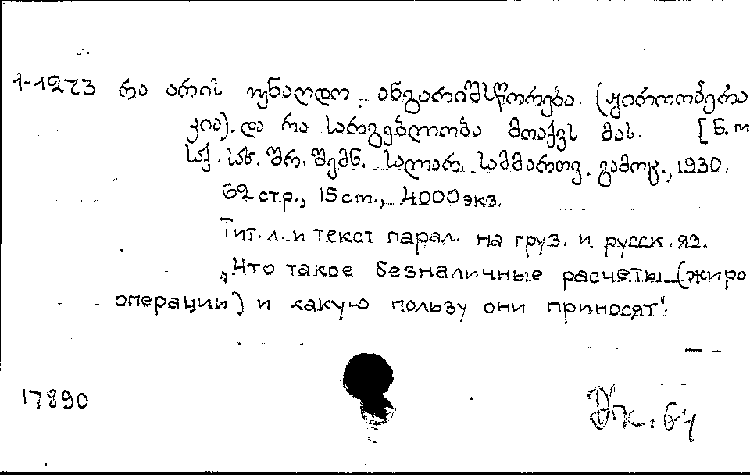 1-1973 რა არის უნაღდო ანგარიშსწორება. (ჟიროოპერა
ცია). და რა სარგებლობა მოაქვს მას. [ნ. თ
საქ. სახ. შრ. შემნ. სალარ. სამმართვ. გამოც., 1930.
62 стр., 15 cm., 4000 экз.
Тит. л. и текст парал. на груз. и русск. яз.
„Что такое безналичные расчеты (жиро
операции) и какую пользу они приносят".
17890